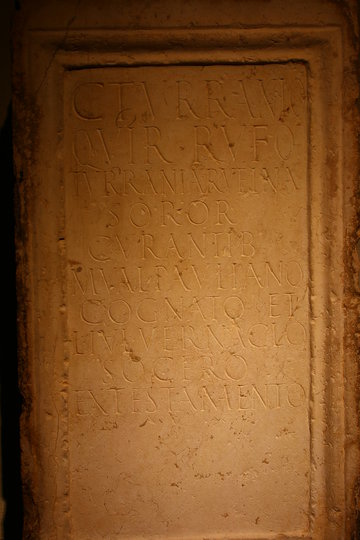 C TVRRANI
QVIR RVFO
TVRRANIA
SOROR
CVRANTIB
M VAL PAVLIANO
COGNATO ET
L IVL VERNACLO
SOCERO
EX TESTAMENTO